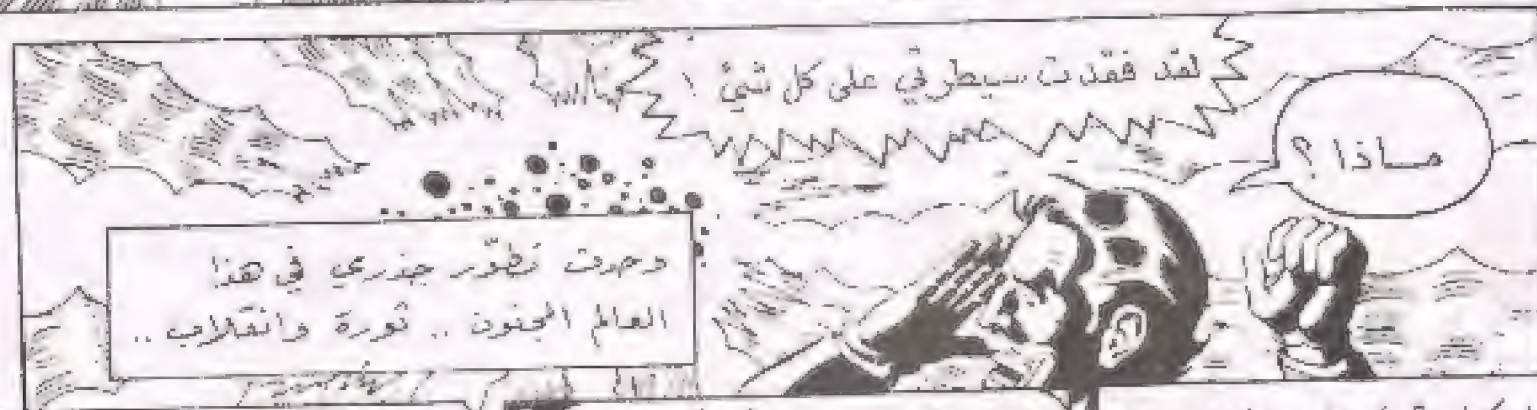 لقد فقدت سيطرتي على كل شيئ !
ماذا ؟
وحدث تطوّر جذري في هذا
العالم المجنون .. ثورة وانقلاب ..